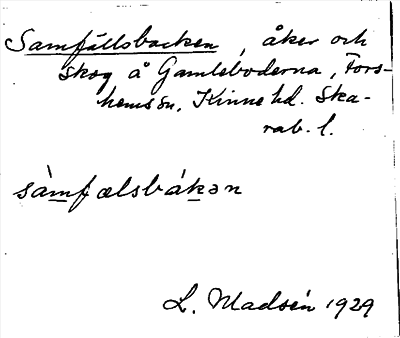 Samfällsbacken, åker och
skog å Gamleboderna, Fors-
hems sn, Kinne hd. Ska-
rab. l.
sàmfælsbákən
L. Madsén 1929